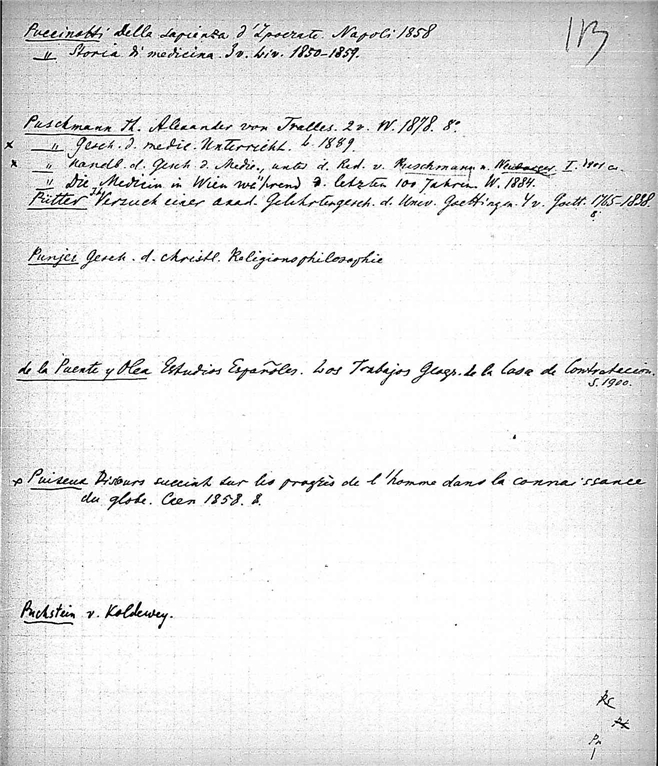 113
Puccinotti Della Sapienza d'Ipocrate. Napoli 1858
" Storia di medicina. 3 v. Liv. 1850-1859.
Puschmann Th. Alexander von Tralles. 2 v. W. 1878. 8°
x " Gesch. d. medic. Unterricht. L. 1889.
x " Handb. d. Gesch. d. Medic., unter d. Red. v. Puschmann u. Neuburger I. 1901
" Die Medicin in Wien während d. letzten 100 Jahren W. 1884.
Pütter Versuch einer acad. Gelehrtengesch. d. Univ. Goetting. 4 v. Goett. 1765-1838
8.
Punjer Gesch. d. christl. Religionsphilosophie
de la Puente y Olea Estudios Españoles. Los Trabajos Geogr. de la Casa de Contratacion.
S. 1900.
x Puiseux Discurs succint sur les progrès de l'homme dans la connaissance
du globe. Caen 1858. 8.
Puchstein v. Koldewey.
Pu
1